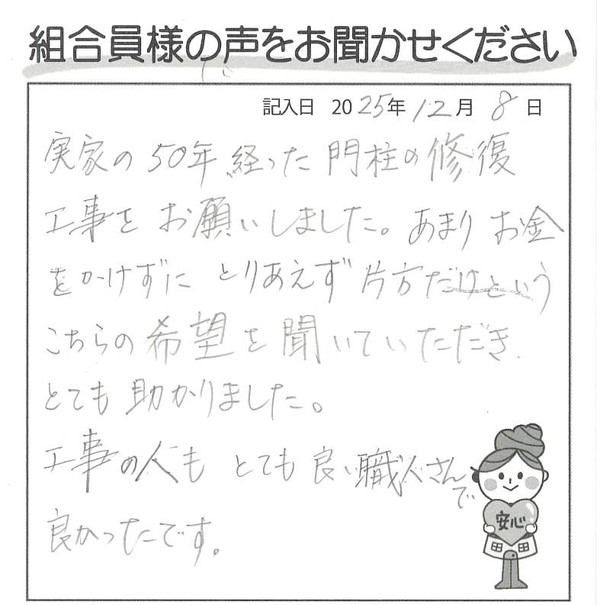 組合員様の声をお聞かせください
記入日 2025年12月8日
実家の50年経った門柱の修復
工事をお願いしました。あまりお金
をかけずにとりあえず片方だけという
こちらの希望を聞いていただき、
とても助かりました。
工事の人もとても良い職人さんで
良かったです。
安心